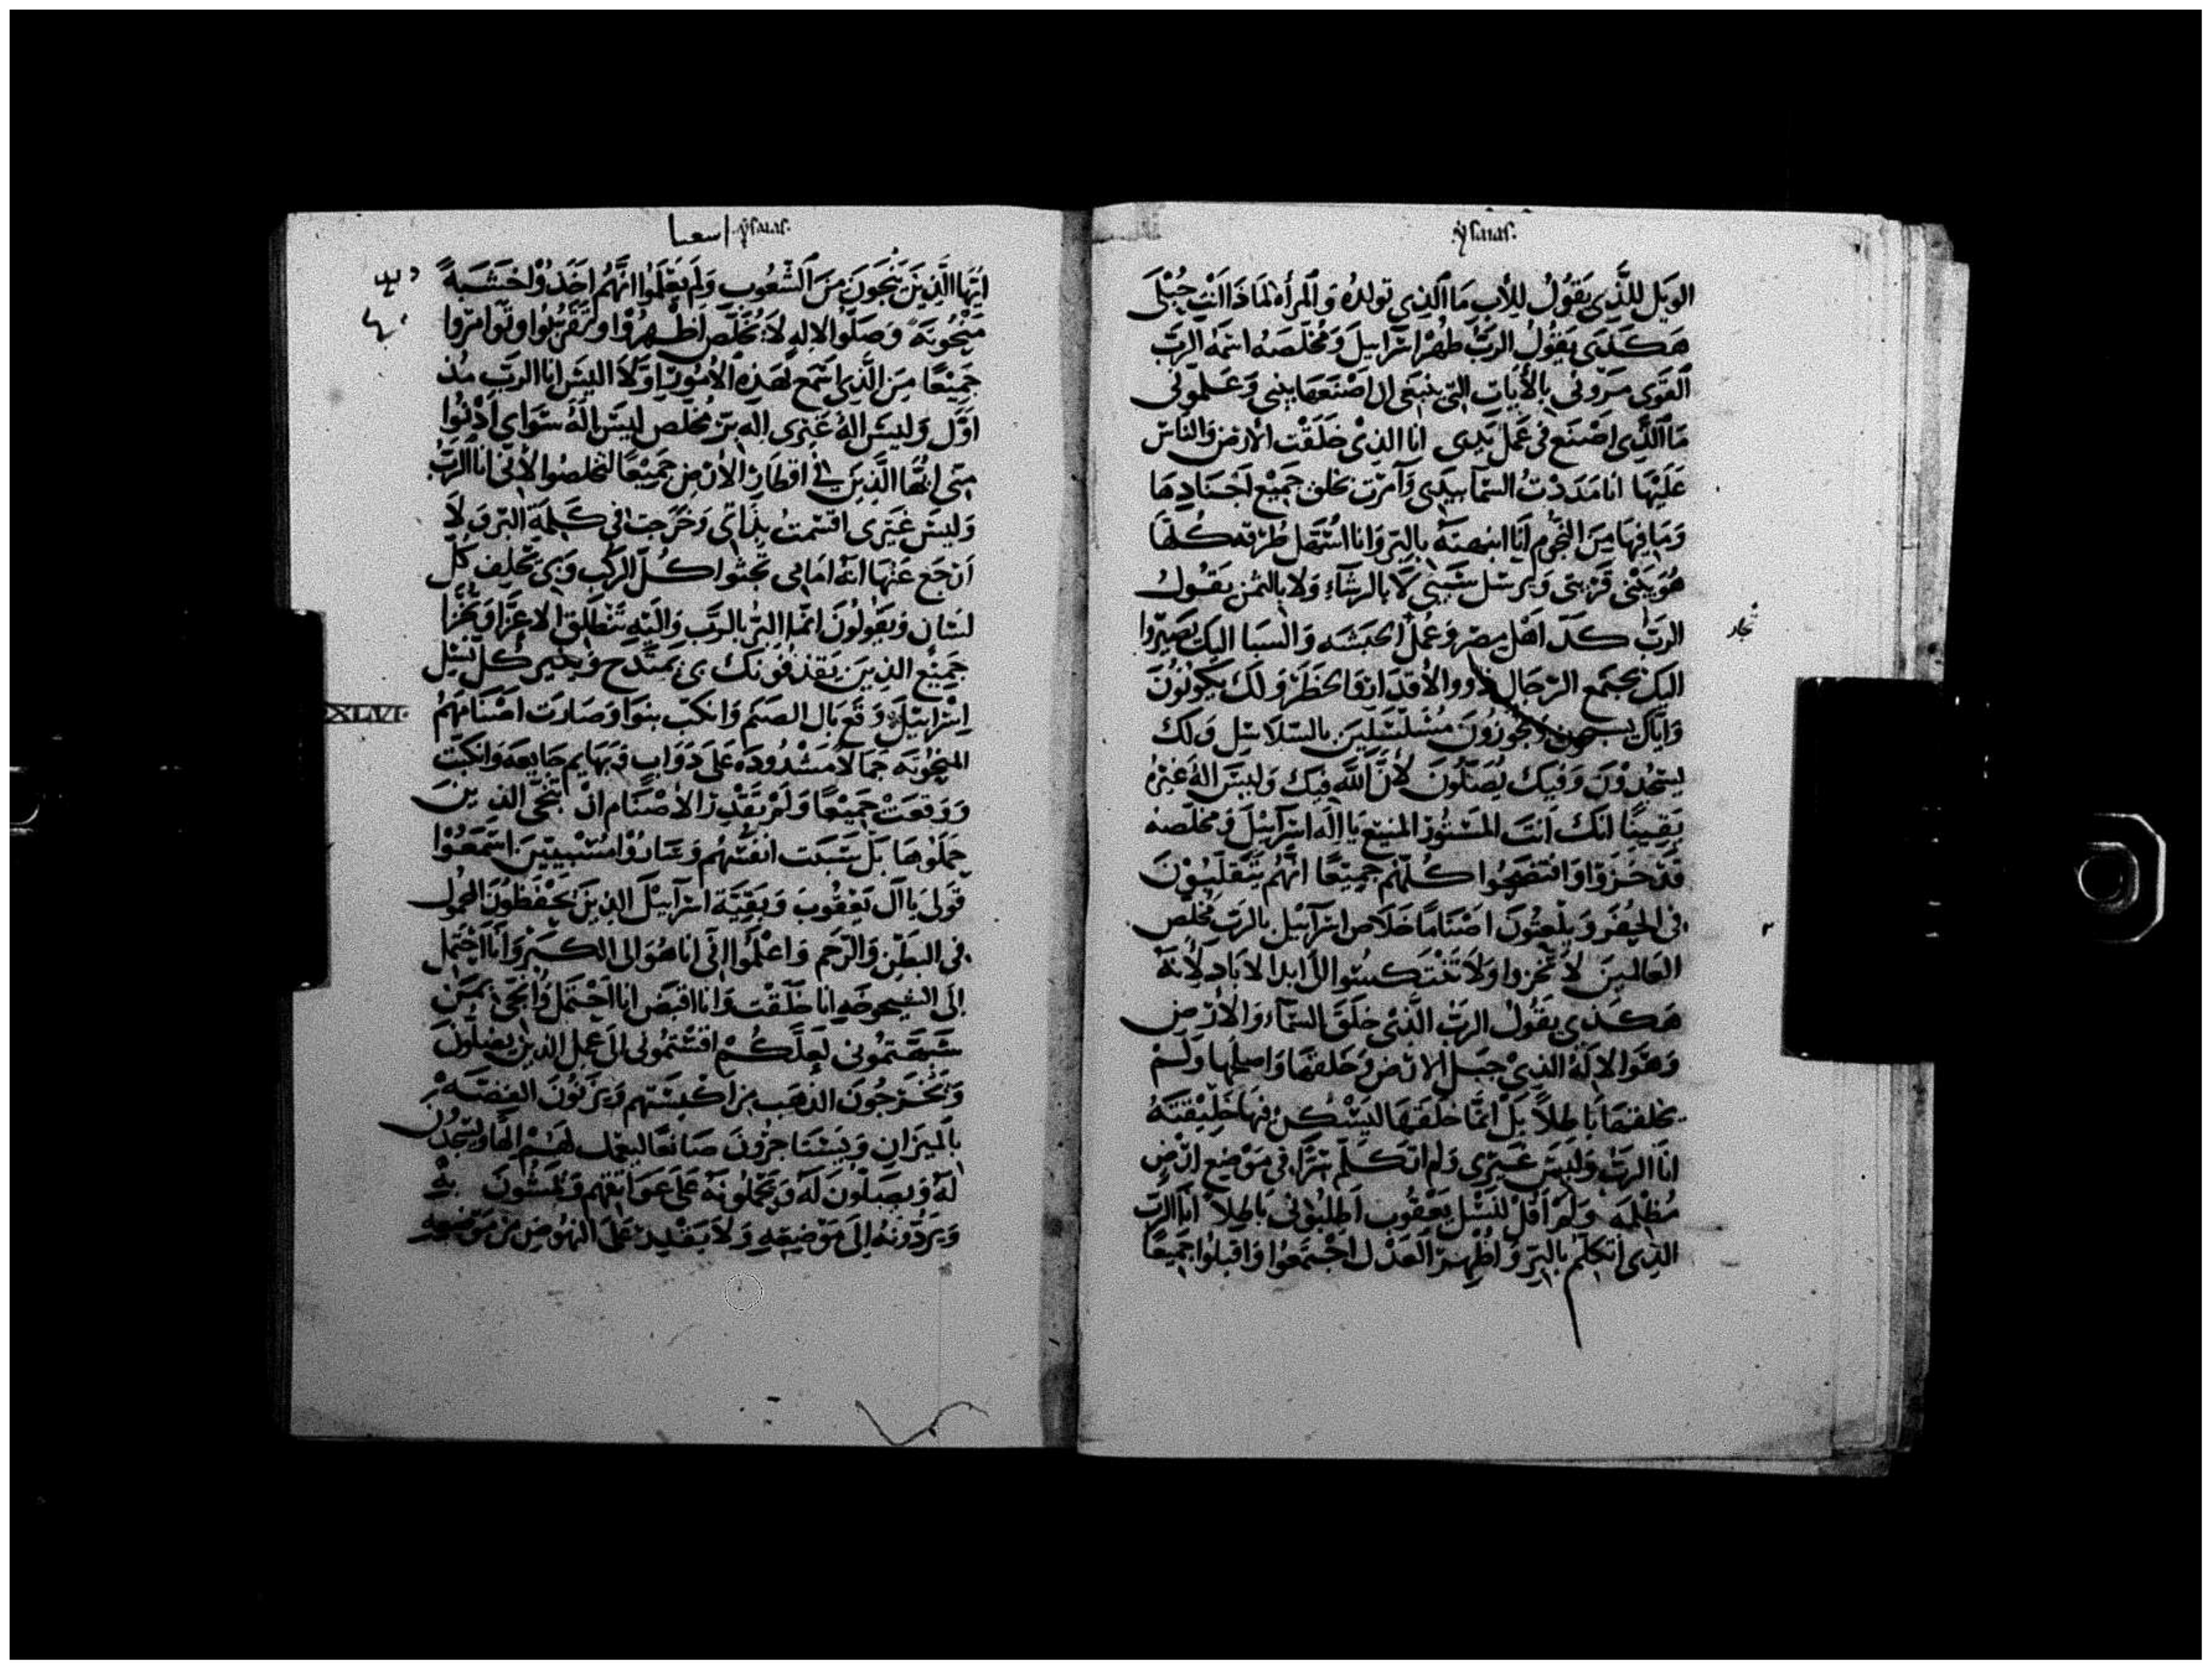 ysaias.
الويل للذي يقول للأب ما الذي تولده وللمرأه لماذا انت حبلى
هكذى يقول الرب طهر اسرآييل ومخلصه اسمه الرب
القوى سروني بالأيات التي ينبغى ان اصنعها ببنى وعلموني
ما الذي اصنع في عمل يدى انا الذى خلقت الارض والناس
عليها انا مددت السما بيدى وآمرت بخلق جميع اجنادها
وما فيها من النجوم انا انهضته بالبر وانا اسهل طرقه كلها
هو يبنى قريتى ويرسل سبيى لا بالرشآء ولا بالثمن يقول
الرب كد اهل مصر وعمل الحبشه والسبا اليك يصيروا
اليك يجتمع الرجال ذوو الأقدار والخطر ولك يكونون
واياك يجوزون مسلسلين بالسلاسل ولك
يسجدون وفيك يصلون لأن الله فيك وليس اله غيره
يقينا انك انت المستور المنيع يا اله اسرآييل ومخلصه
قد خزوا وافتضحوا كلهم جميعا انهم يتقلبون
في الحفر ويلعنون اصناما خلاص اسرآييل بالرب مخلص
العالمين لا تخزوا ولا تنتكسوا الى ابد الاباد لأنه
هكذى يقول الرب الذى خلق السمآء والارض
وهو الاله الذى جبل الارض وخلقها واصلحها ولم
يخلقها باطلاً بل انما خلقها ليسكن فيها خليقته
انا الرب وليس غيرى ولم اتكلم سرا في موضع ارض
مظلمه ولم اقل لنسل يعقوب اطلبونى باطلا انا الرب
الذى اتكلم بالبر واظهر العدل اجتمعوا واقبلوا جميعا
اشعيا ysaias.
ايها الذين ينجون من الشعوب ولم يعلموا انهم اخذوا خشبة
منجونه وصلوا لاله لا يخلص اظهروا وتقربوا وتوامروا
جميعا من الذى اسمع لهذه الأمور اولا اليس انا الرب منذ
اول وليس اله غيرى اله بر مخلص ليس اله سواى ادنوا
منى ايها الذين في اقطار الأرض جميعا لتخلصوا لأنى انا الرب
وليس غيرى اقسمت بذاتى وخرجت في كلمة البر ولا
ارجع عنها انه امامى تجثوا كل الركب وبى يحلف كل
لسان ويقولون انما البر بالرب واليه تنطلق الاعزا ويخزا
جميع الذين يقذفونك بى يمتدح كل نسل
اسرآييل وقع بال الصنم وانكب بنوا وصارت اصنامهم
المنجونه حمالا مشدوده على دواب وبهايم جايعه وانكبت
ووقعت جميعا ولم تقدر الأصنام ان تنجى الذين
حملوها بل سبيت انفسهم وصاروا مسبيين اسمعوا
قولى يا آل يعقوب وبقية اسرآييل الذين يحفظون المحمول
في البطن والرحم واعلموا انى انا هو الى الكبر وانا احتمل
الى الشيخوخه انا خلقت وانا اقبض انا احتمل وانجى بمن
شبهتمونى لعلكم اقستمونى الى عمل الذين يصلون
ويخرجون الذهب من اكيستهم ويزنون الفضه
بالميزان ويستاجرون صانعا ليعمل لهم الها ويسجدون
له ويصلون له ويحملونه على عواتقهم ويمشون به
ويردونه الى موضعه ولا يقدر على النهوض من موضعه
XLVI.